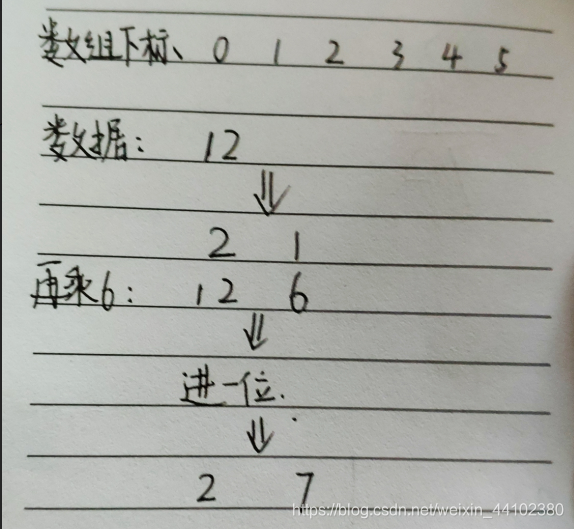 数组下标、 0 1 2 3 4 5
数据： 12
⇓
2 1
再乘6： 12 6
⇓
进一位.
⇓
2 7
https://blog.csdn.net/weixin_44102380